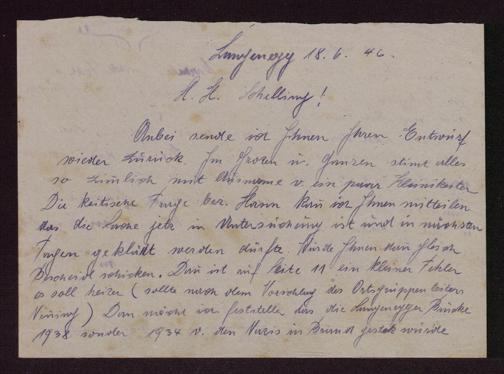 Langenegg 18. 6. 46.
H. H. Schelling!
Anbei sende ich Ihnen Ihren Entwurf
wieder zurück. Im Grozen u. Ganzen stimt alles
so zimlich mit Ausname v. ein paar Kleinikeiten
Die keitische Frage bez. Hann kan ich Ihnen mitteilen
das die Sache jetz in Untersuchung ist und in nächsten
Tagen geklärt werden dürfte. Würde Ihnen dan gleich
Bescheid schicken. Dan ist auf Seite 11 ein kleiner Fehler
es soll heizen (sollte nach dem Vorschlag des Ortsgruppenleiters
) Dan möcht ich feststellen das die Langenegger Brücke
1938 sonder 1934 v. den Nazis in Brand gestekt wurde